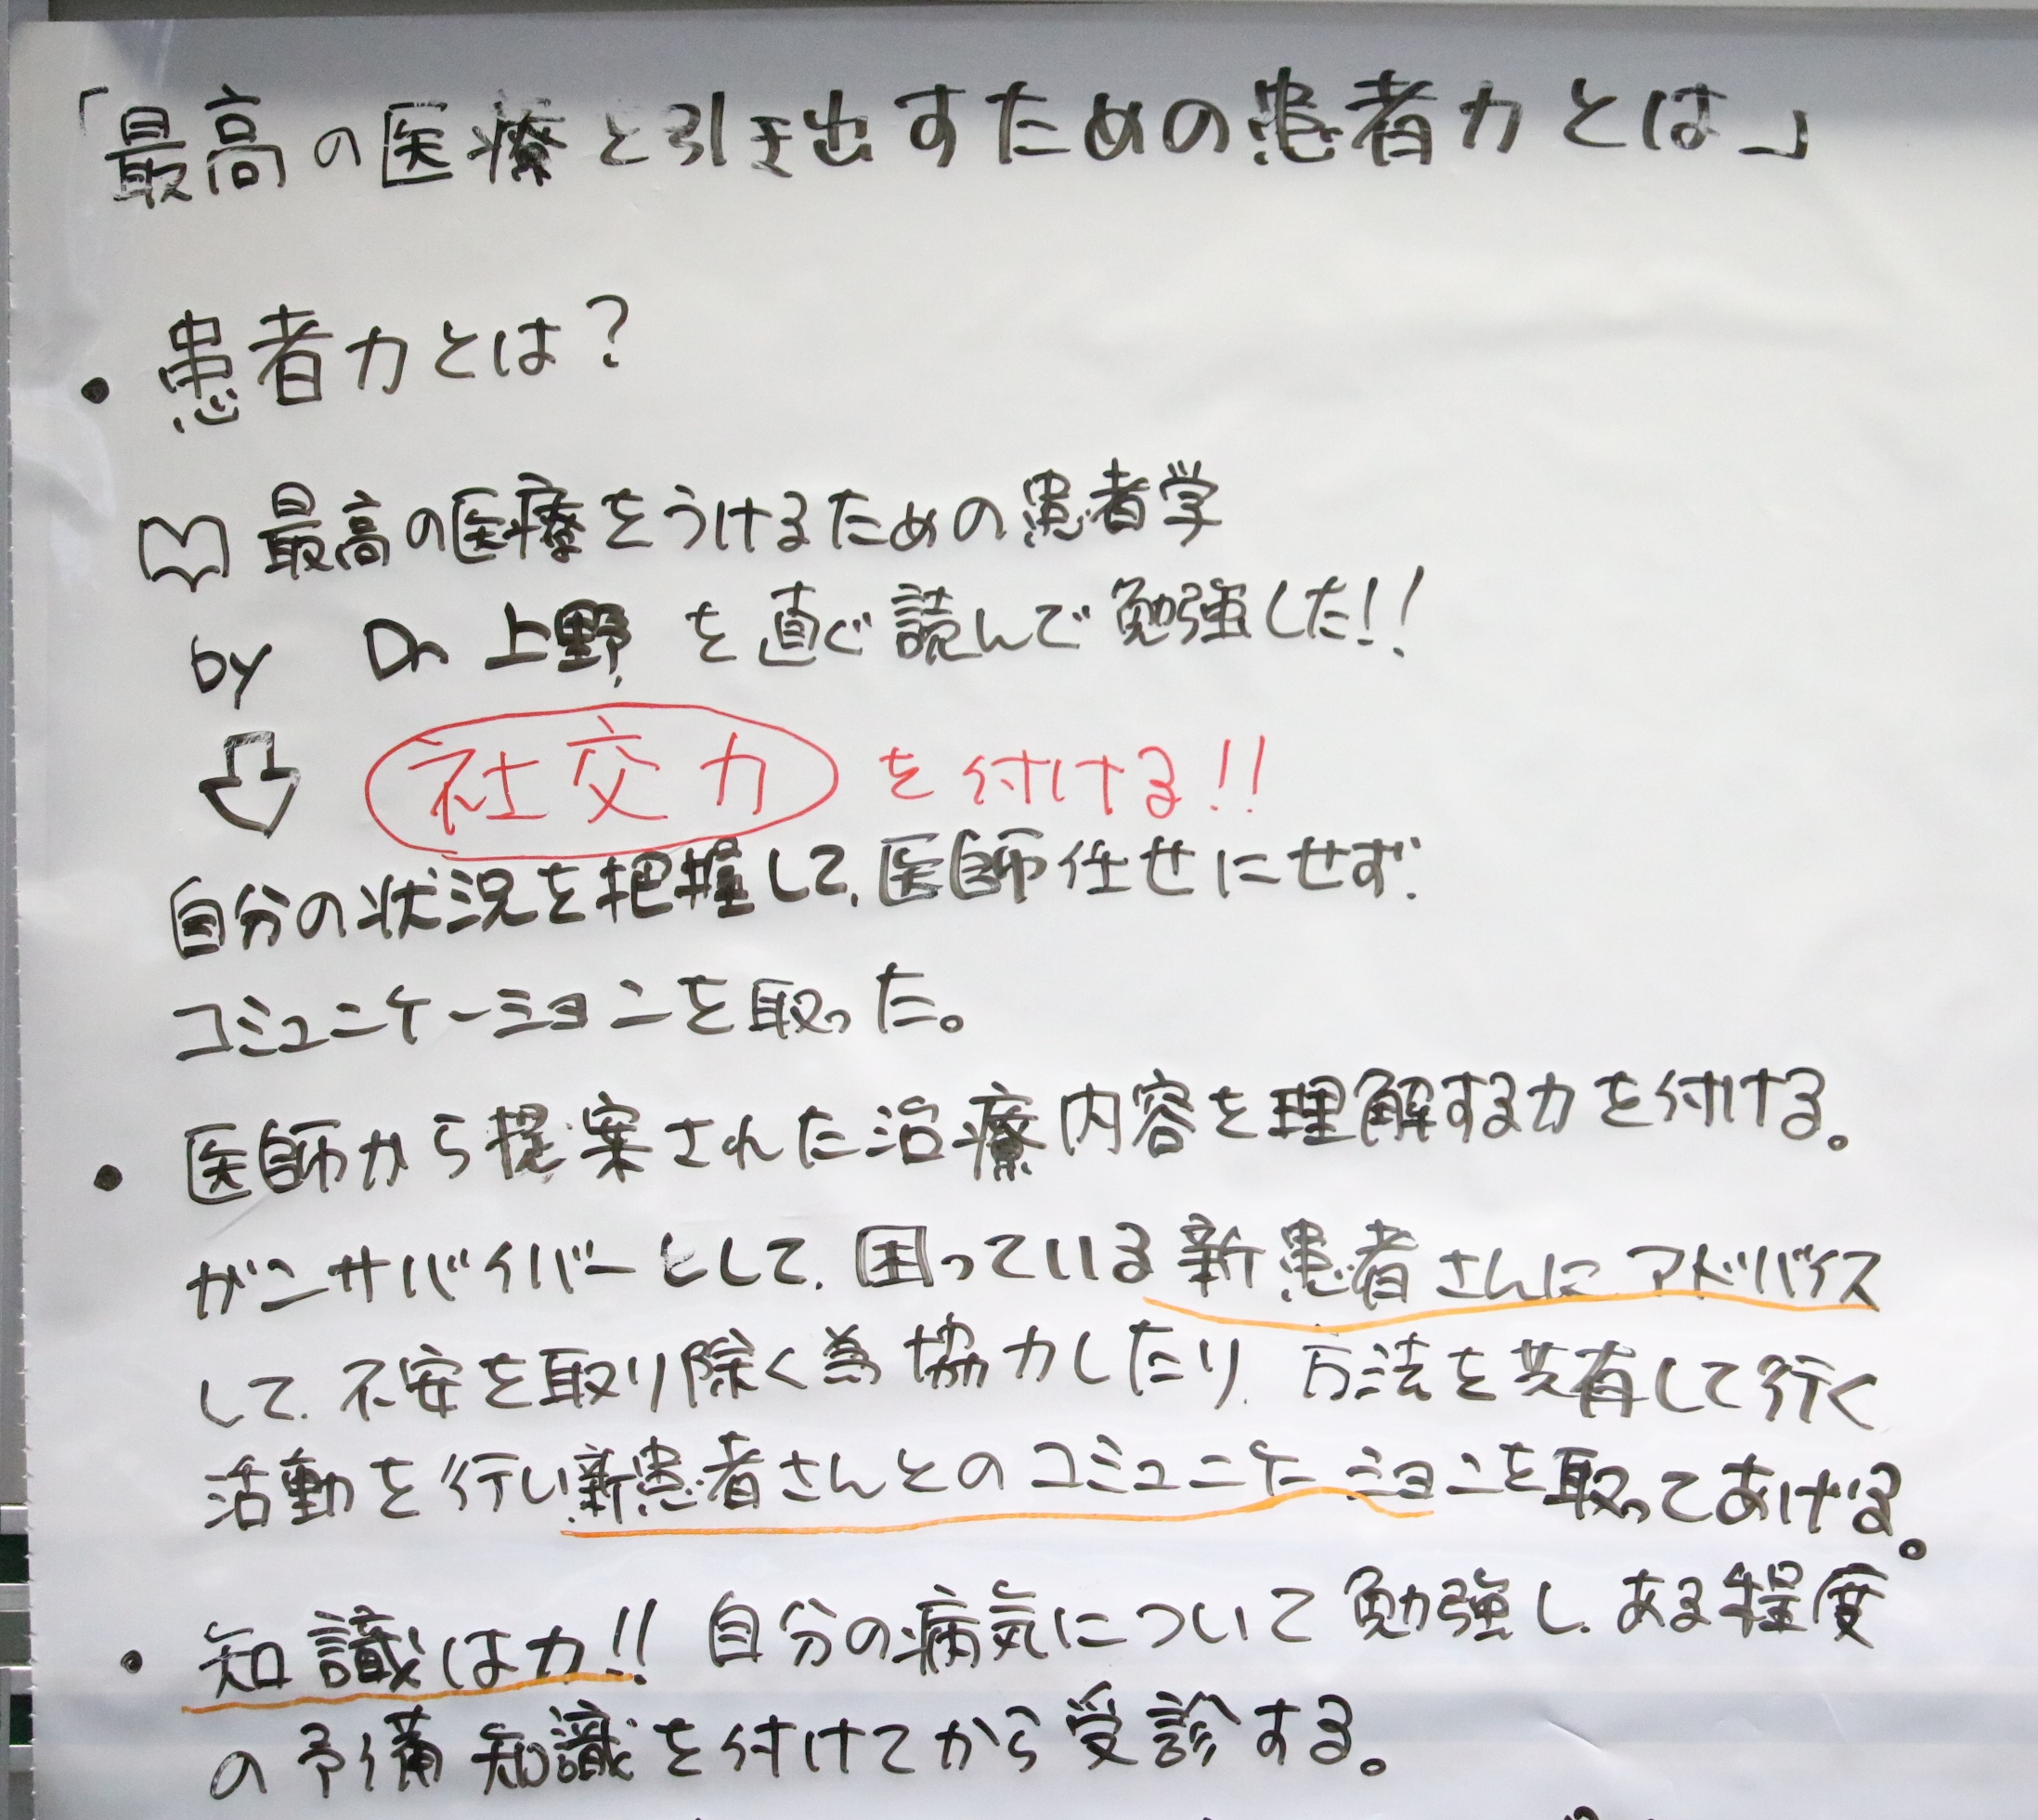 「最高の医療を引き出すための患者力とは」
・患者力とは?
最高の医療をうけるための患者学
by Dr 上野 を直ぐ読んで勉強した!!
社交力を付ける!!
自分の状況を把握して、医師任せにせず、
コミュニケーションを取った。
・医師から提案された治療内容を理解する力を付ける。
ガンサバイバーとして、困っている新患者さんにアドバイス
して、不安を取り除く為協力したり、方法を共有して行く
活動を行い新患者さんとのコミュニケーションを取ってあげる。
・知識は力!! 自分の病気について勉強し、ある程度
の予備知識を付けてから受診する。